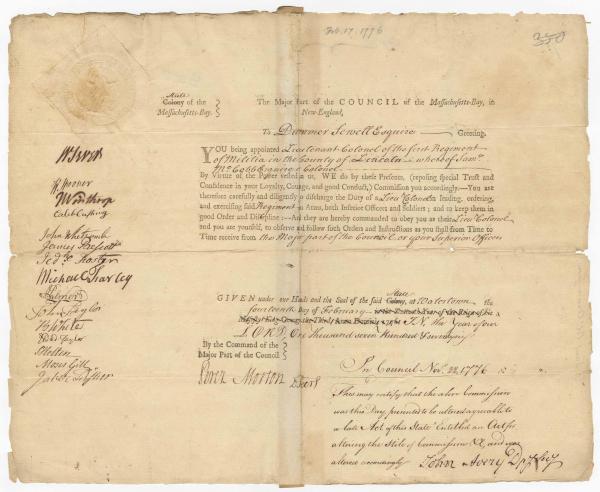 Feb. 17. 1776
State
Colony of the
Massachusetts-Bay.
The Major Part of the COUNCIL of the Massachusetts-Bay, in
New-England,
To Dummer Sewell Esquire Greeting.
YOU being appointed Lieutenant Colonel of the first Regiment
of Militia in the County of Lincoln whereof Saml.
McCobb Esquire is Colonel
By Virtue of the Power vested in us, WE do by these Presents, (reposing special Trust and
Confidence in your Loyalty, Courage, and good Conduct,) Commission you accordingly.—You are
therefore carefully and diligently to discharge the Duty of a Lieut Colonel in leading, ordering,
and exercising said Regiment in Arms, both Inferior Officers and Soldiers; and to keep them in
good Order and Discipline:—And they are hereby commanded to obey you as their Lieut Colonel
and you are yourself, to observe and follow such Orders and Instructions as you shall from Time to
Time receive from the Major part of the Council or your Superior Officers
W Sever
W Spooner
J Winthrop
Caleb Cushing
John Whetcomb
James Prescott
Jedh. Foster
Michael Farley
John Taylor
B White
Moses Gill
Jabez Fisher
State
GIVEN under our Hands and the Seal of the said Colony, at Watertown the
fourteenth Day of February
IN the Year of our
LORD, One thousand seven Hundred & seventy six
By the Command of the
Major Part of the Council
Perez Morton D Secry
In Council Nov. 22. 1776
This may certify that the above Commission
was this Day presented to be altered agreeable to
a late Act of this State Entitled an Act for
altering the Stile of Commissions &c and was
altered accordingly John Avery Dpy Secy